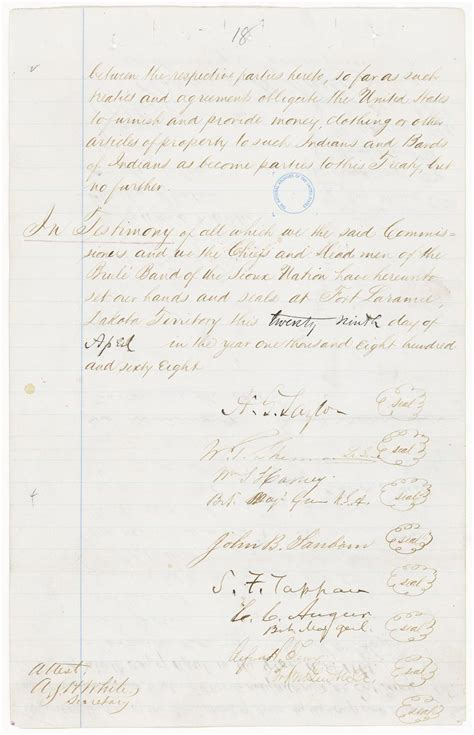 18
between the respective parties hereto, so far as such
treaties and agreements obligate the United States
to furnish and provide money, clothing or other
articles of property to such Indians and Bands
of Indians as become parties to this Treaty, but
no further.
In Testimony of all which we the said Commis-
sioners and we the Chiefs and Headmen of the
Brulé Band of the Sioux Nation have hereunto
set our hands and seals at Fort Laramie,
Dakota Territory this twenty ninth day of
April in the year one thousand Eight hundred
and sixty Eight
N. G. Taylor seal
W. T. Sherman seal
Wm. S. Harney
Bvt Maj Gen U.S.A. seal
John B. Sanborn seal
S. F. Tappan seal
C. C. Augur
Bvt. Maj Genl. seal
Alfred H. Terry
seal
Attest,
A. S. H. White
Secretary